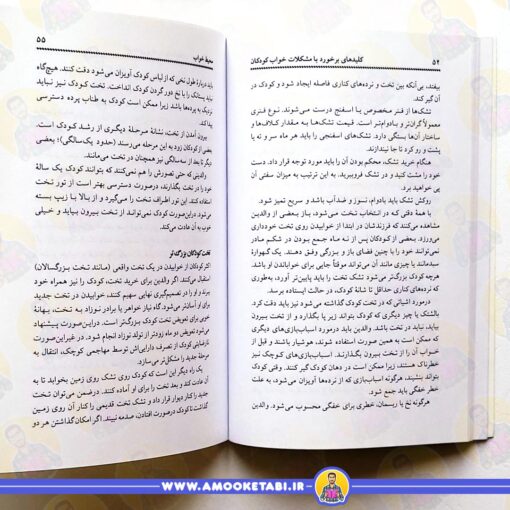 ۵۴ کلیدهای برخورد با مشکلات خواب کودکان
بیفتد، بی‌آنکه بین تخت و نرده‌های کناری فاصله ایجاد شود و کودک در
آن گیر کند.
تشک‌ها از فنر مخصوص یا اسفنج درست می‌شوند. نوع فنری
معمولاً گران‌تر و بادوام‌تر است. قیمت تشک‌ها به مقدار کلاف‌ها و
ساختار آن‌ها بستگی دارد. تشک‌های اسفنجی را باید هر ماه سر و ته یا
پشت و رو کرد تا جا نیندازند.
هنگام خرید تشک، محکم بودن آن را باید مورد توجه قرار داد. دست
خود را مشت کنید و در تشک فروببرید. به این ترتیب به میزان سفتی آن
پی خواهید برد.
روکش تشک باید بادوام، نسوز و ضدآب باشد و سریع تمیز شود.
با همهٔ دقتی که در انتخاب تخت می‌شود، باز بعضی از والدین
مشاهده می‌کنند که فرزندشان در ابتدا از خوابیدن روی تخت خودداری
می‌ورزد. بعضی از کودکان پس از نه ماه جمع بودن در شکم مادر
نمی‌توانند خود را با چنین فضای باز و بزرگی وفق دهند. یک گهوارهٔ
سبدمانند یا چیزی مانند آن می‌تواند موقتاً جایی برای خواباندن او باشد.
هرچه کودک بزرگ‌تر می‌شود تشک تخت باید پایین‌تر بیاید تا جایی
که نرده‌های کناری حداقل تا شانهٔ کودک، در حالت ایستاده برسد.
درمورد اشیائی که در تخت کودک گذاشته می‌شود نیز باید دقت کرد.
بالشتک یا چیز دیگری که کودک بتواند زیر پا بگذارد و از تخت بیرون
بیاید، نباید در تخت باشد. والدین باید درمورد اسباب‌بازی‌های بزرگ
که ممکن است به همین صورت استفاده شوند، هوشیار باشند و قبل از
خواب آن را از تخت بیرون بگذارند. اسباب‌بازی‌های کوچک نیز
خطرناک هستند، زیرا ممکن است در دهان کودک گیر کنند. وقتی کودک
بتواند بنشیند، هرگونه اسباب‌بازی که از نرده‌ها آویزان می‌شود، به علت
خطر خفگی باید جمع شود.
هرگونه نخ یا ریسمان، خطری برای خفگی محسوب می‌شود. والدین
محیط خواب ۵۵
باید دربارهٔ طول نخی که از لباس کودک آویزان می‌شود دقت کنند. هیچ‌گاه
نباید پستانک را با نخ دور گردن کودک انداخت. تخت کودک نیز نباید
نزدیک به پرده‌ها باشد زیرا ممکن است کودک به طناب پرده دسترسی
پیدا کند.
بیرون آمدن از تخت، نشانهٔ مرحلهٔ دیگری از رشد کودک است.
بعضی از کودکان زود به این مرحله می‌رسند (حدود یک‌سالگی)؛ بعضی
دیگر تا بعد از سه‌سالگی نیز همچنان در تخت می‌مانند.
والدینی که حتی تصورش را هم نمی‌کنند که بتوانند کودک یک سالهٔ
خود را در تخت بگذارند، درصورت دسترسی بهتر است از تور تخت
استفاده کنند. این تور اطراف تخت را می‌گیرد و از بالا با زیپ بسته
می‌شود. دراین‌صورت کودک نمی‌تواند از تخت بیرون بیاید و خیلی
خوب به آن عادت می‌کند.
تخت کودکان بزرگ‌تر
اکثر کودکان از خوابیدن در یک تخت واقعی (مانند تخت بزرگسالان)
استقبال می‌کنند. اگر والدین برای خرید تخت، کودک را نیز همراه خود
ببرند و او را در تصمیم‌گیری نهایی سهیم کنند، خوابیدن در تخت جدید
برای او آسان‌تر می‌شود. گاه نیاز خواهر یا برادر نوزاد به تخت، بهانهٔ
خوبی برای تعویض تخت کودک بزرگ‌تر است. دراین‌صورت پیشنهاد
می‌شود تعویض دو ماه زودتر از تولد نوزاد انجام شود. در غیراین‌صورت
نارضایتی کودک از تصرف دارایی‌اش توسط مهاجمی کوچک، انتقال به
مرحلهٔ جدید را مشکل‌تر می‌کند.
یک راه دیگر این است که کودک روی تشک روی زمین بخوابد تا به
آن عادت کند و بعد تخت را برای او آماده کنند. درضمن می‌توان تخت
جدید را کنار دیوار قرار داد و تشک تخت قدیمی را کنار آن روی زمین
گذاشت تا کودک درصورت افتادن، صدمه نبیند. اگر امکان گذاشتن هر دو
WWW.AMOOKETABI.IR